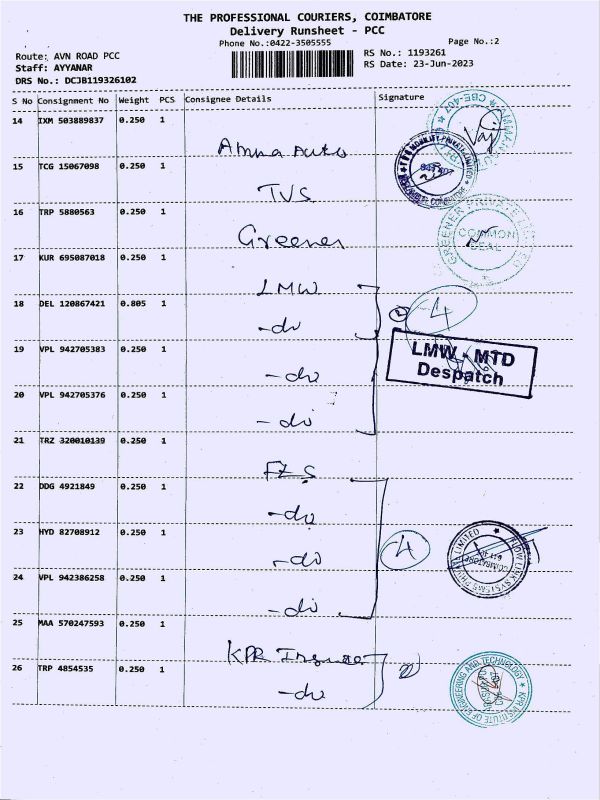 THE PROFESSIONAL COURIERS, COIMBATORE
Delivery Runsheet - PCC
Phone No.:0422-3505555
Page No.:2
Route: AVN ROAD PCC
RS No.: 1193261
Staff: AYYANAR
RS Date: 23-Jun-2023
DRS No.: DCJB119326102
S No Consignment No Weight PCS Consignee Details Signature
14 IXM 503889837 0.250 1
Amma Auto
15 TCG 15067098 0.250 1
TVS
16 TRP 5880563 0.250 1
Greener
GREENER PRIVATE LIMITED
COMMON
SEAL
17 KUR 695087018 0.250 1
LMW
18 DEL 120867421 0.805 1
-do
4
19 VPL 942705383 0.250 1
-do
LMW - MTD
Despatch
20 VPL 942705376 0.250 1
-do
21 TRZ 320010139 0.250 1
22 DDG 4921849 0.250 1
-do
23 HYD 82708912 0.250 1
-do
4
FLOW LINK SYSTEMS PRIVATE LIMITED
24 VPL 942386258 0.250 1
-do
25 MAA 570247593 0.250 1
KPR
26 TRP 4854535 0.250 1
-do
KPR INSTITUTE OF ENGINEERING AND TECHNOLOGY